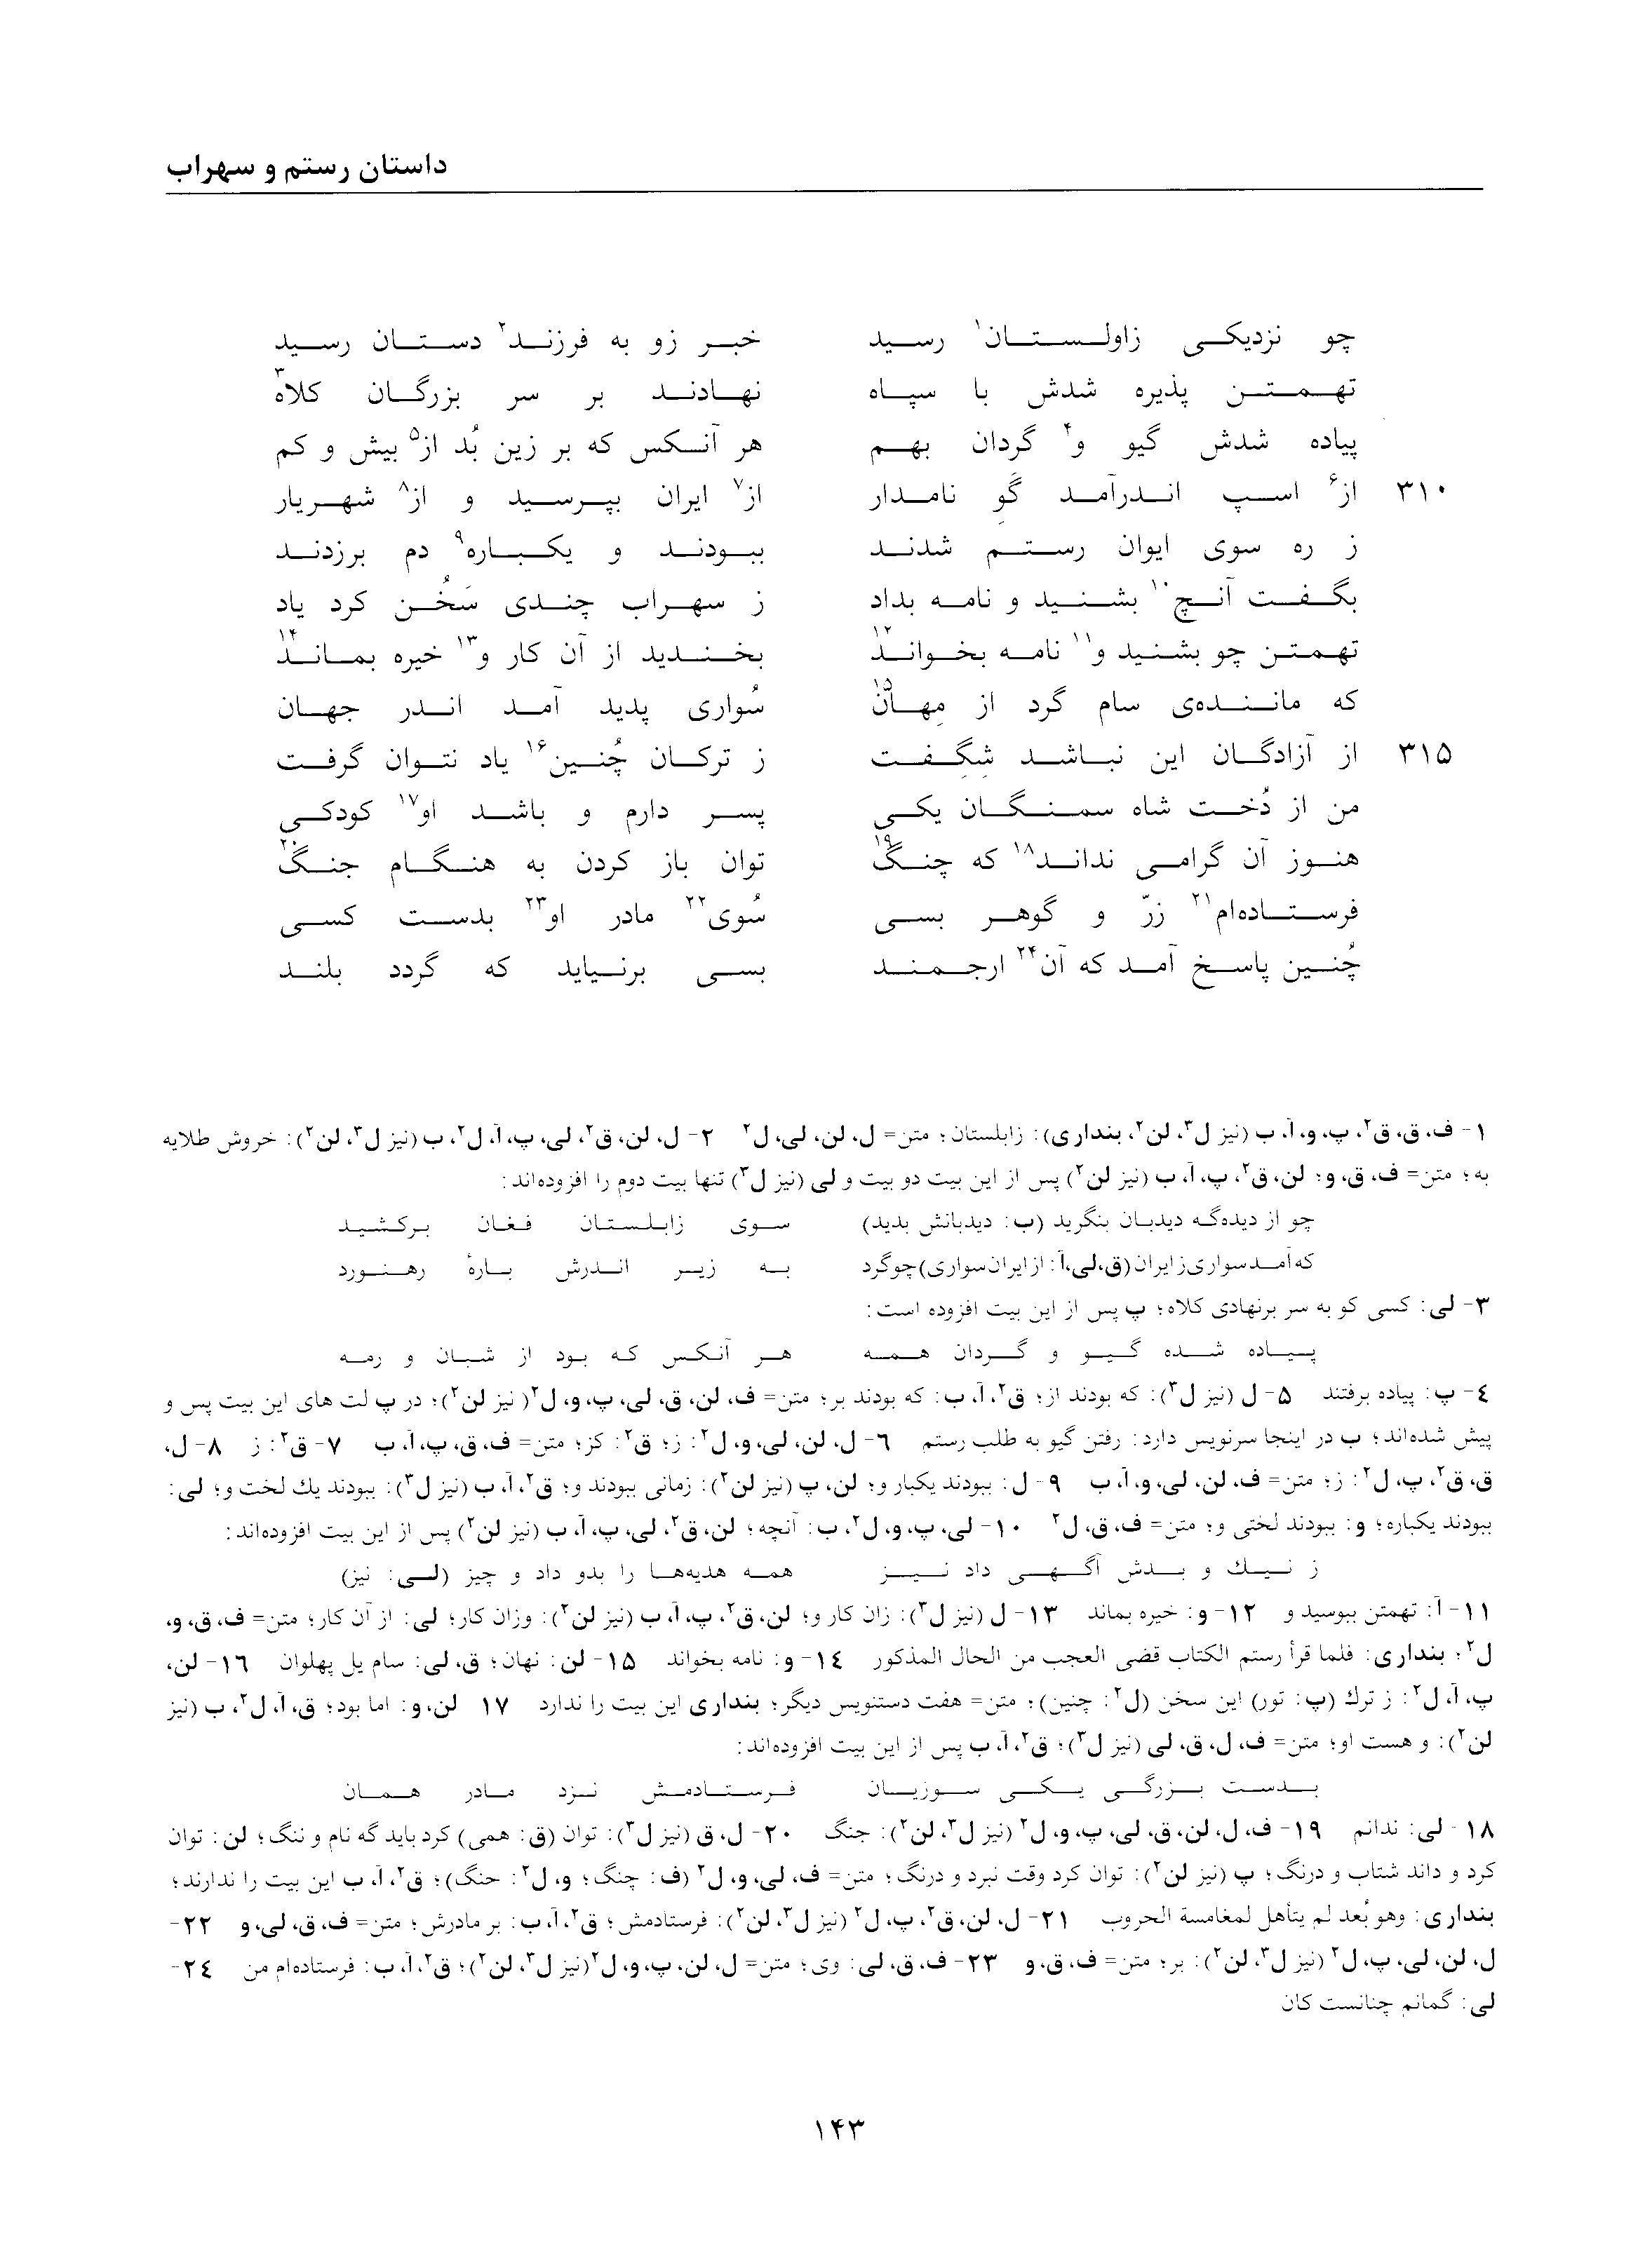 داستان رستم و سهراب
چو نزدیکی زاولستان۱ رسید خبر زو به فرزند۲ دستان رسید
تهمتن پذیره شدش با سپاه نهادند بر سر بزرگان کلاه۳
پیاده شدش گیو و۴ گردان بهم هر آنکس که بر زین بُد از۵ بیش و کم
۳۱۰ از۶ اسپ اندرآمد گَوِ نامدار از۷ ایران بپرسید و از۸ شهریار
ز ره سوی ایوان رستم شدند ببودند و یکباره۹ دم برزدند
بگفت آنچ۱۰ بشنید و نامه بداد ز سهراب چندی سَخُن کرد یاد
تهمتن چو بشنید و۱۱ نامه بخواند۱۲ بخندید از آن کار و۱۳ خیره بماند۱۴
که ماننده‌ی سام گرد از مِهان۱۵ سُواری پدید آمد اندر جهان
۳۱۵ از آزادگان این نباشد شِگِفت ز ترکان چُنین۱۶ یاد نتوان گرفت
من از دُخت شاه سمنگان یکی پسر دارم و باشد او۱۷ کودکی
هنوز آن گرامی نداند۱۸ که چنگ۱۹ توان باز کردن به هنگام جنگ۲۰
فرستاده‌ام۲۱ زرّ و گوهر بسی سُوی۲۲ مادر او۲۳ بدست کسی
چُنین پاسخ آمد که آن۲۴ ارجمند بسی برنیاید که گردد بلند
۱- ف، ق، ق۲، پ، و، آ، ب (نیز ل۳، لن۲، بنداری): زابلستان؛ متن= ل، لن، لی، ل۲ ۲- ل، لن، ق۲، لی، پ، آ، ل۲، ب (نیز ل۳، لن۲): خروش طلایه
به؛ متن= ف، ق، و؛ لن، ق۲، پ، آ، ب (نیز لن۲) پس از این بیت دو بیت و لی (نیز ل۳) تنها بیت دوم را افزوده‌اند:
چو از دیده‌گه دیدبان بنگرید (ب: دیدبانش بدید) سوی زابلستان فغان برکشید
که آمد سواری ز ایران (ق، لی، آ: از ایران سواری) چو گرد به زیر اندرش بارهٔ رهنورد
۳- لی: کسی کو به سر برنهادی کلاه؛ پ پس از این بیت افزوده است:
پیاده شده گیو و گردان همه هر آنکس که بود از شبان و رمه
۴- پ: پیاده برفتند ۵- ل (نیز ل۳): که بودند از؛ ق۲، آ، ب: که بودند بر؛ متن= ف، لن، ق، لی، پ، و، ل۲( نیز لن۲)؛ در پ لت های این بیت پس و
پیش شده‌اند؛ ب در اینجا سرنویس دارد: رفتن گیو به طلب رستم ۶- ل، لن، لی، و، ل۲: ز؛ ق۲: کز؛ متن= ف، ق، پ، آ، ب ۷- ق۲: ز ۸- ل،
ق، ق۲، پ، ل۲: ز؛ متن= ف، لن، لی، و، آ، ب ۹- ل: ببودند یکبار و؛ لن، پ (نیز لن۲): زمانی ببودند و؛ ق۲، آ، ب (نیز ل۳): ببودند یك لخت و؛ لی:
ببودند یکباره؛ و: ببودند لختی و؛ متن= ف، ق، ل۲ ۱۰- لی، پ، و، ل۲، ب: آنچه؛ لن، ق۲، لی، پ، آ، ب (نیز لن۲) پس از این بیت افزوده‌اند:
ز نیك و بدش آگهی داد نیز همه هدیه‌ها را بدو داد و چیز (لی: نیز)
۱۱- آ: تهمتن ببوسید و ۱۲- و: خیره بماند ۱۳- ل (نیز ل۳): زان کار و؛ لن، ق۲، پ، آ، ب (نیز لن۲): وزان کار؛ لی: از آن کار؛ متن= ف، ق، و،
ل۲؛ بنداری: فلما قرأ رستم الکتاب قضی العجب من الحال المذکور ۱۴- و: نامه بخواند ۱۵- لن: نهان؛ ق، لی: سام یل پهلوان ۱۶- لن،
پ، آ، ل۲: ز ترك (پ: تور) این سخن (ل۲: چنین)؛ متن= هفت دستنویس دیگر؛ بنداری این بیت را ندارد ۱۷ لن، و: اما بود؛ ق، آ، ل۲، ب (نیز
لن۲): و هست او؛ متن= ف، ل، ق، لی (نیز ل۳)؛ ق۲، آ، ب پس از این بیت افزوده‌اند:
بدست بزرگی یکی سوزیان فرستادمش نزد مادر همان
۱۸- لی: ندانم ۱۹- ف، ل، لن، ق، لی، پ، و، ل۲ (نیز ل۳، لن۲): جنگ ۲۰- ل، ق (نیز ل۳): توان (ق: همی) کرد باید گه نام و ننگ؛ لن: توان
کرد و داند شتاب و درنگ؛ پ (نیز لن۲): توان کرد وقت نبرد و درنگ؛ متن= ف، لی، و، ل۲ (ف: چنگ؛ و، ل۲: حنگ)؛ ق۲، آ، ب این بیت را ندارند؛
بنداری: وهو بُعد لم یتأهل لمغامسة الحروب ۲۱- ل، لن، ق۲، پ، ل۲ (نیز ل۳، لن۲): فرستادمش؛ ق۲، آ، ب: بر مادرش؛ متن= ف، ق، لی، و ۲۲-
ل، لن، لی، پ، ل۲ (نیز ل۳، لن۲): بر؛ متن= ف، ق، و ۲۳- ف، ق، لی: وی؛ متن= ل، لن، پ، و، ل۲(نیز ل۳، لن۲)؛ ق۲، آ، ب: فرستاده‌ام من ۲۴-
لی: گمانم چنانست کان
۱۴۳